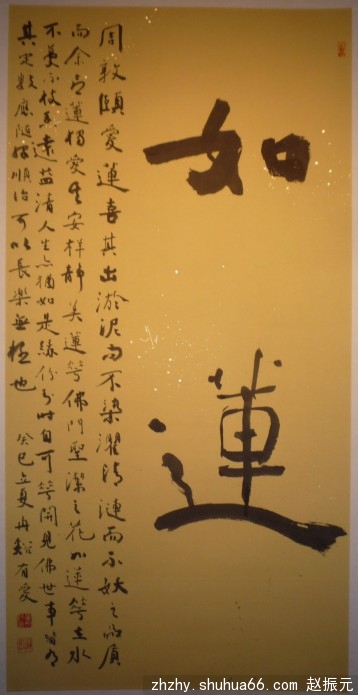 如蓮
周敦頤愛蓮喜其出淤泥而不染濯清漣而不妖之品質
而余之蓮獨愛其安祥靜美蓮花佛門聖潔之花如蓮花在水
不蔓不枝香遠益清人生亦猶如是緣份到時自可花開見佛世事皆有
其定數應隨緣順治可以長樂無極也
癸巳立夏
有愛
zhzhy.shuhua66.com 赵振元